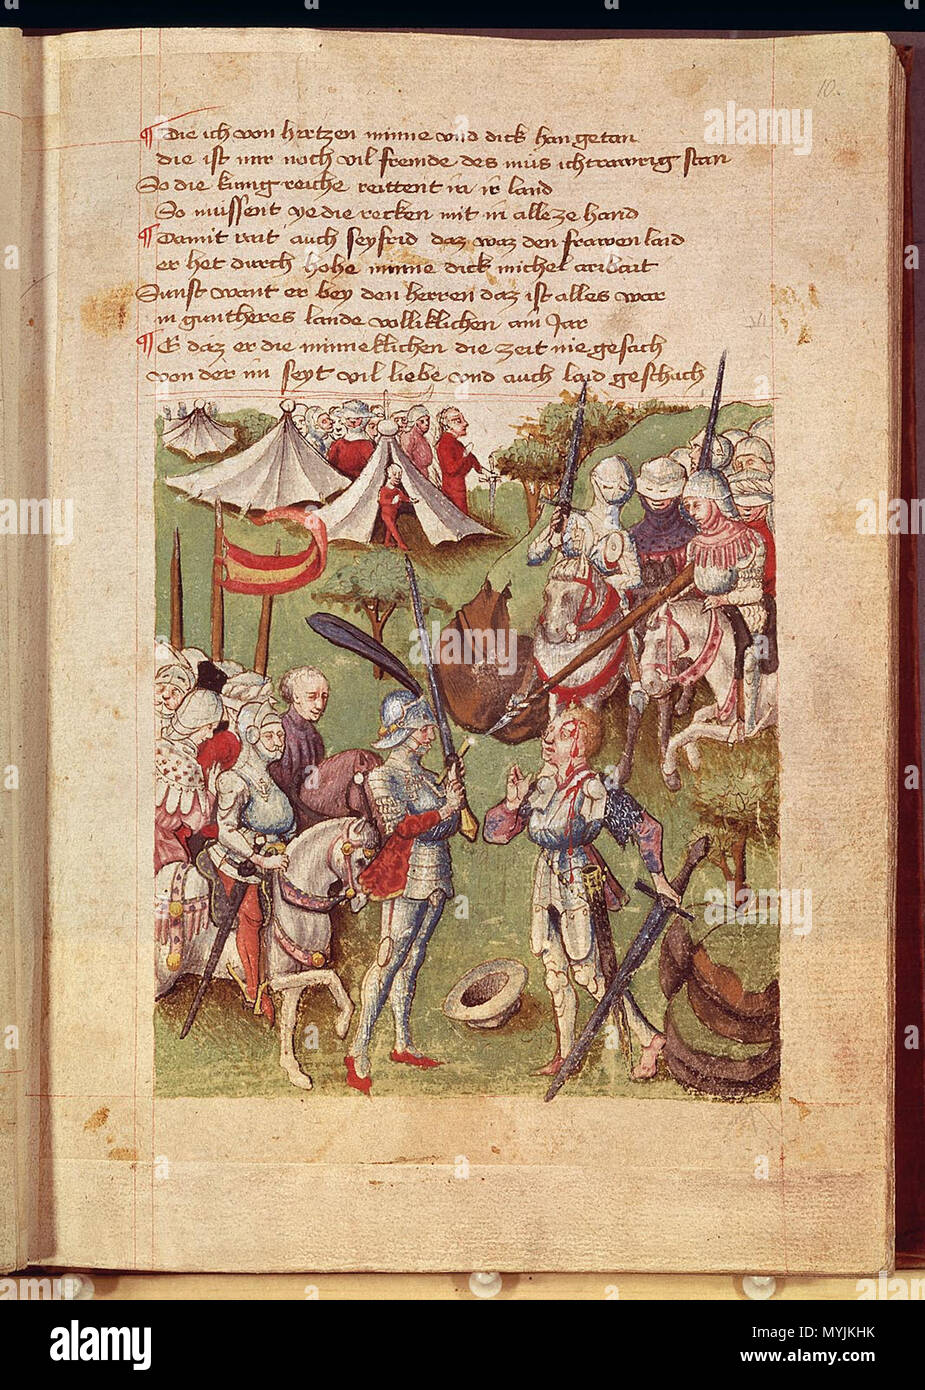 10.
¶ Die ich von hertzen minne vnd dick han getan
die ist mir noch vil fremde des mus ich trawrig stan
So die kunig reiche reittent in ir land
So mussent ye die recken mit in alleze hand
¶ Damit rait auch Seyfrid daz waz den frawen laid
er het durch hohe minne dick michel aribait
Sunst want er bey den herren daz ist alles war
in guntheres lande volliklichen ain Jar
¶ E daz er die minneklichen die zeit nie gesach
von der im seyt vil liebe vnd auch laid geschach
alamy
Image ID: MYJKHK
www.alamy.com